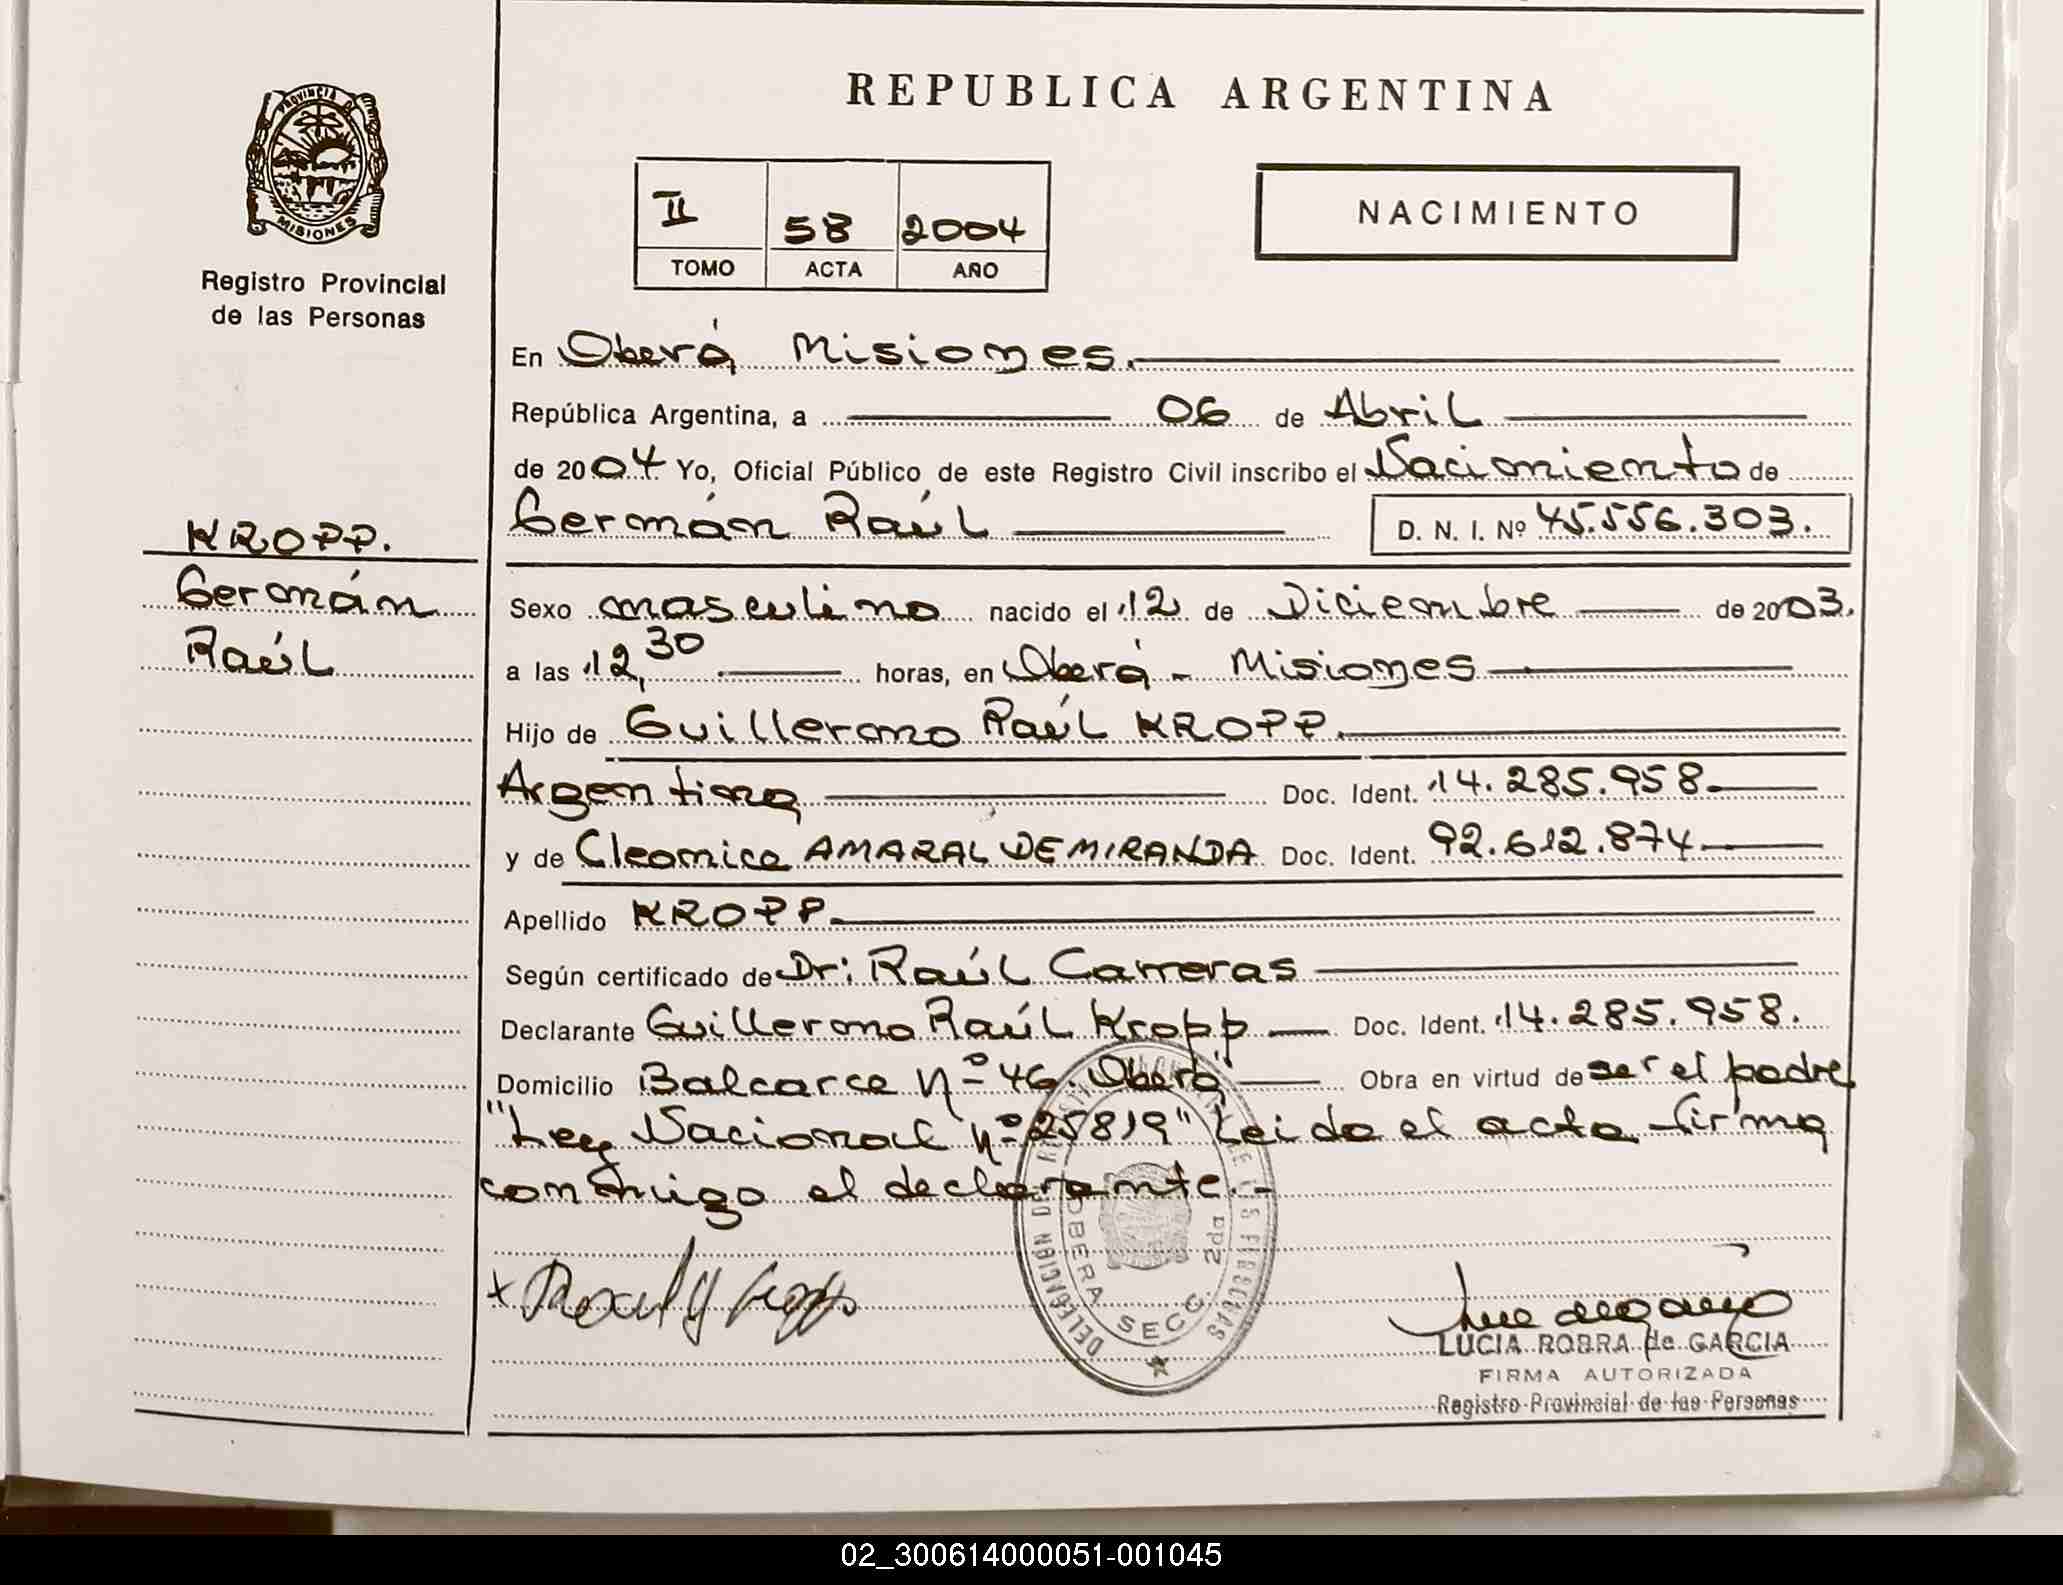 REPUBLICA ARGENTINA
PROVINCIA DE
MISIONES
Registro Provincial
de las Personas
II 58 2004
TOMO ACTA AÑO
NACIMIENTO
En Oberá Misiones.
República Argentina, a 06 de Abril
de 2004 Yo, Oficial Público de este Registro Civil inscribo el Nacimiento de
Germán Raúl D. N. I. Nº 45.556.303.
KROPP.
Germán
Raúl
Sexo masculino nacido el 12 de Diciembre de 2003.
a las 12,30 horas, en Oberá - Misiones
Hijo de Guillermo Raúl KROPP.
Argentina Doc. Ident. 14.285.958.
y de Cleonice AMARAL DE MIRANDA Doc. Ident. 92.612.874
Apellido KROPP.
Según certificado de Dr: Raúl Carreras
Declarante Guillermo Raúl Kropp Doc. Ident. 14.285.958.
Domicilio Balcarce nº 46. Oberá Obra en virtud de ser el padre
"Ley Nacional nº 25819" Leido el acta firma
conmigo el declarante.-
DELEGACIÓN DE LAS PERSONAS
OBERA SECC. 2da
LUCIA ROBRA de GARCIA
FIRMA AUTORIZADA
Registro Provincial de las Personas
02_300614000051-001045